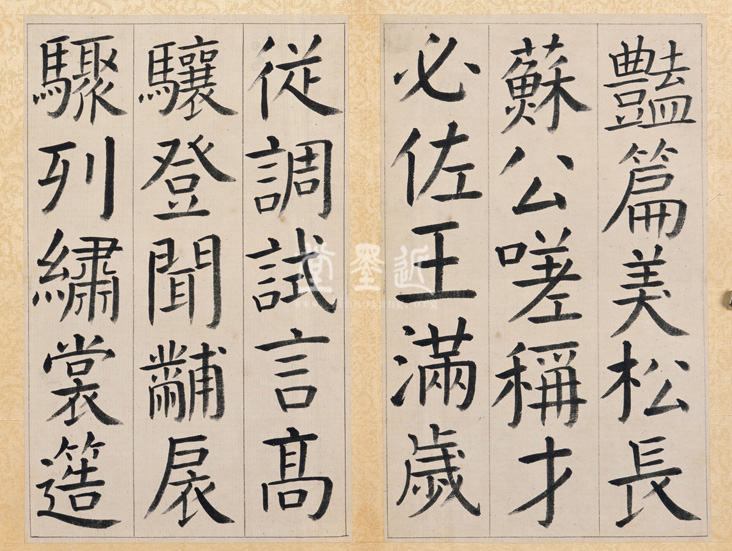 豔篇美松長
蘇公嗟稱才
必佐王滿歲
從調試言高
驤登聞黼扆
驟列繡裳簉
近墨堂